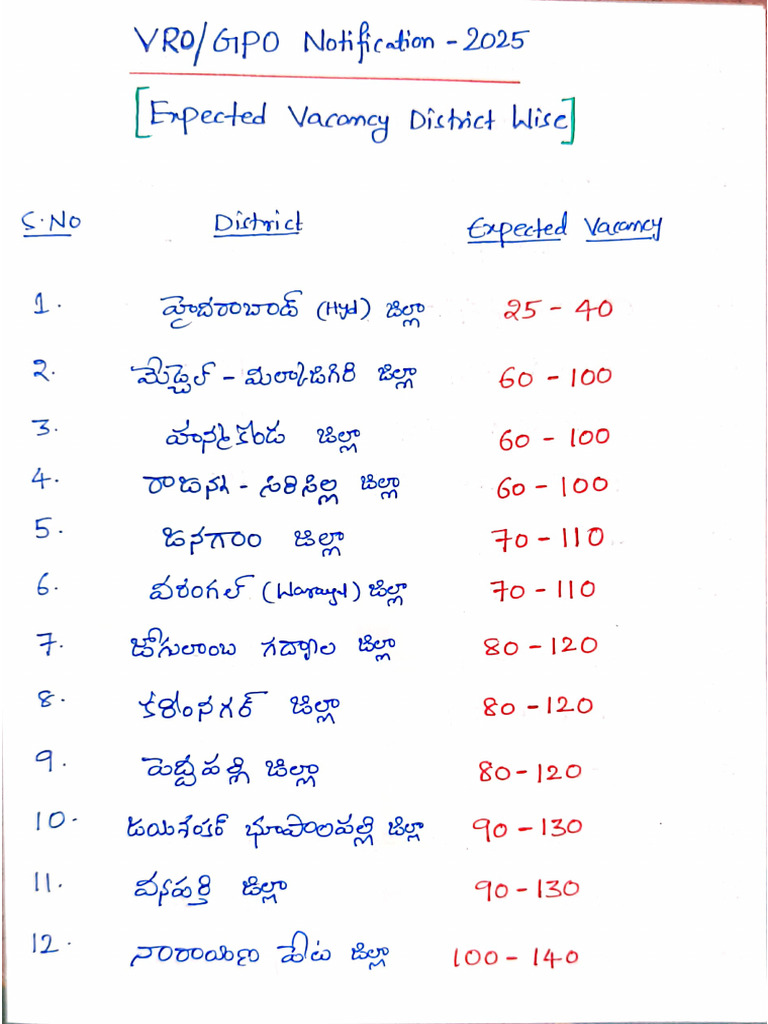 VRO/GPO Notification - 2025
[Expected Vacancy District Wise]
S.No District Expected Vacancy
1. హైదరాబాద్ (Hyd) జిల్లా 25 - 40
2. మేడ్చెల్ - మల్కాజిగిరి జిల్లా 60 - 100
3. హన్మకొండ జిల్లా 60 - 100
4. రాజన్న - సిరిసిల్ల జిల్లా 60 - 100
5. జనగాం జిల్లా 70 - 110
6. వరంగల్ (Warangal) జిల్లా 70 - 110
7. జోగులాంబ గద్వాల జిల్లా 80 - 120
8. కరీంనగర్ జిల్లా 80 - 120
9. పెద్దపల్లి జిల్లా 80 - 120
10. జయశంకర్ భూపాలపల్లి జిల్లా 90 - 130
11. వనపర్తి జిల్లా 90 - 130
12. నారాయణ పేట జిల్లా 100 - 140